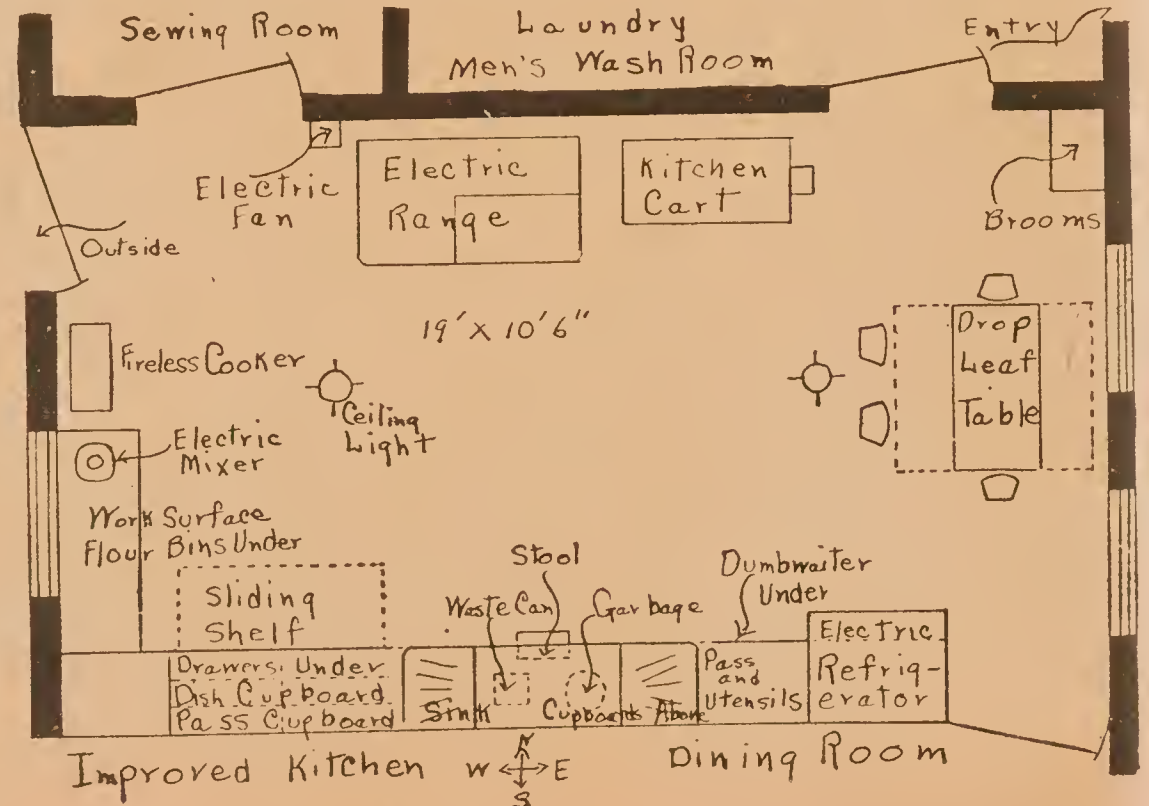 Sewing Room
Laundry
Men's Wash Room
Entry
Electric
Fan
Electric
Range
Kitchen
Cart
Brooms
Outside
19' X 10' 6"
Fireless Cooker
Ceiling
Light
Drop
Leaf
Table
Electric
Mixer
Work Surface
Flour Bins Under
Sliding
Shelf
Stool
Waste Can
Garbage
Dumbwaiter
Under
Drawers Under
Dish Cupboard
Pass Cupboard
Sink
Cupboards Above
Pass
and
Utensils
Electric
Refrig-
erator
Improved Kitchen
N
W
E
S
Dining Room